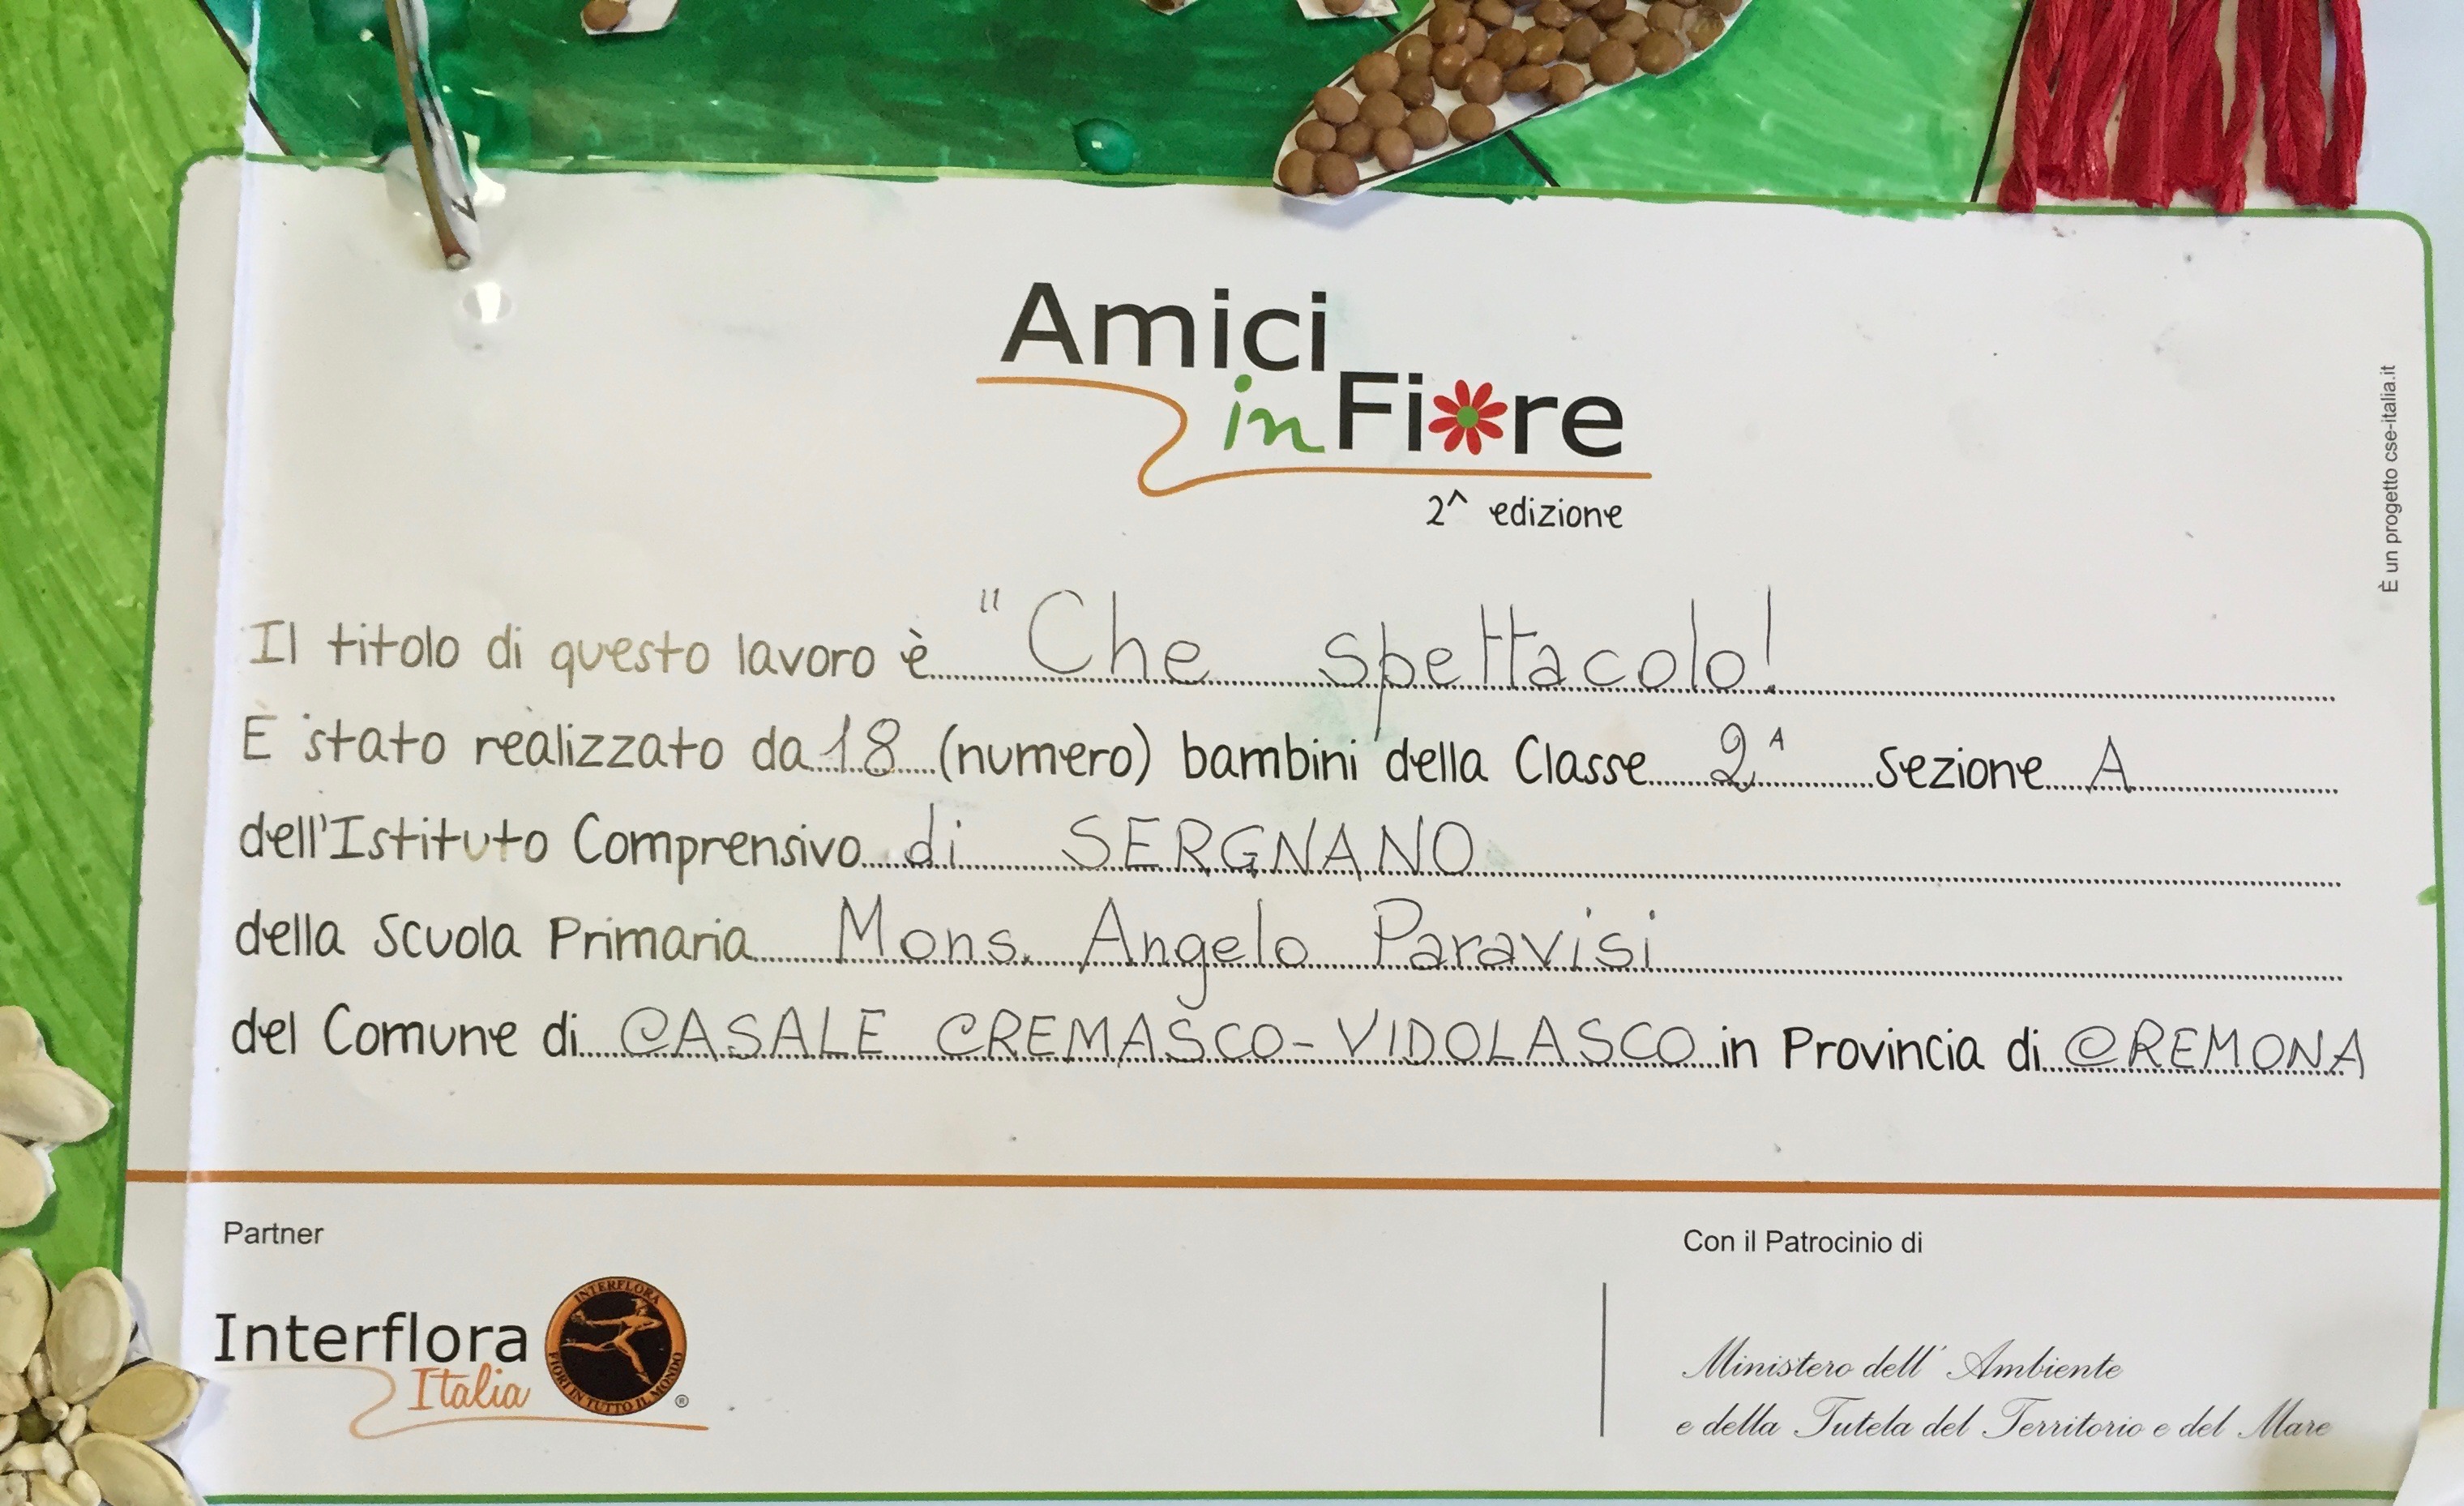 Amici
in Fiore
2^ edizione
È un progetto cse-italia.it
Il titolo di questo lavoro è "Che spettacolo!
È stato realizzato da 18 (numero) bambini della Classe 2^A Sezione A
dell'Istituto Comprensivo di SERGNANO
della Scuola Primaria Mons. Angelo Paravisi
del Comune di CASALE CREMASCO-VIDOLASCO in Provincia di CREMONA
Partner
Interflora
Italia
INTERFLORA
FIORI IN TUTTO IL MONDO
®
Con il Patrocinio di
Ministero dell'Ambiente
e della Tutela del Territorio e del Mare